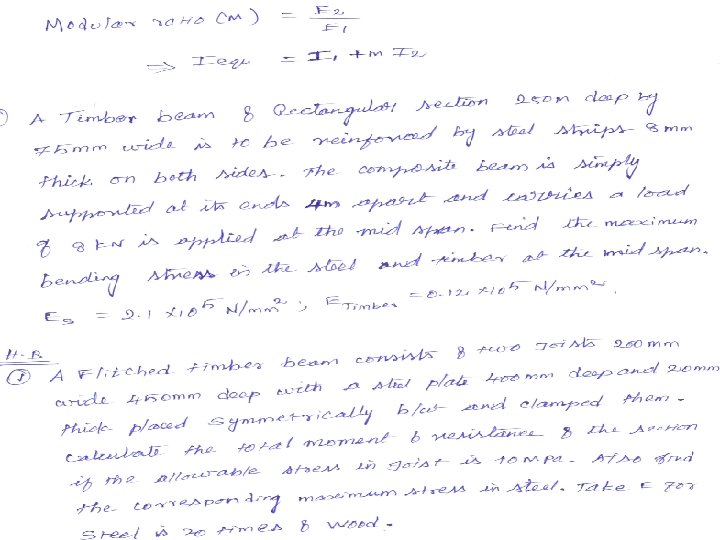 Modular ratio (m) = E2 / E1
⇒ Iequ = I1 + m I2
A Timber beam of Rectangular section 250m deep by
75mm wide is to be reinforced by steel strips 8mm
thick on both sides. The composite beam is simply
supported at its ends 4m apart and carries a load
of 8 kN is applied at the mid span. Find the maximum
bending stress in the steel and timber at the mid span.
Es = 2.1 x10^5 N/mm²; ETimber = 0.12 x10^5 N/mm².
H.B
① A Flitched timber beam consists of two Joists 200mm
wide 450mm deep with a steel plate 400mm deep and 20mm
thick placed symmetrically b/w and clamped them.
Calculate the total moment of resistance of the section
if the allowable stress in Joist is 10MPa. Also find
the corresponding maximum stress in steel. Take E for
Steel is 20 times of Wood.